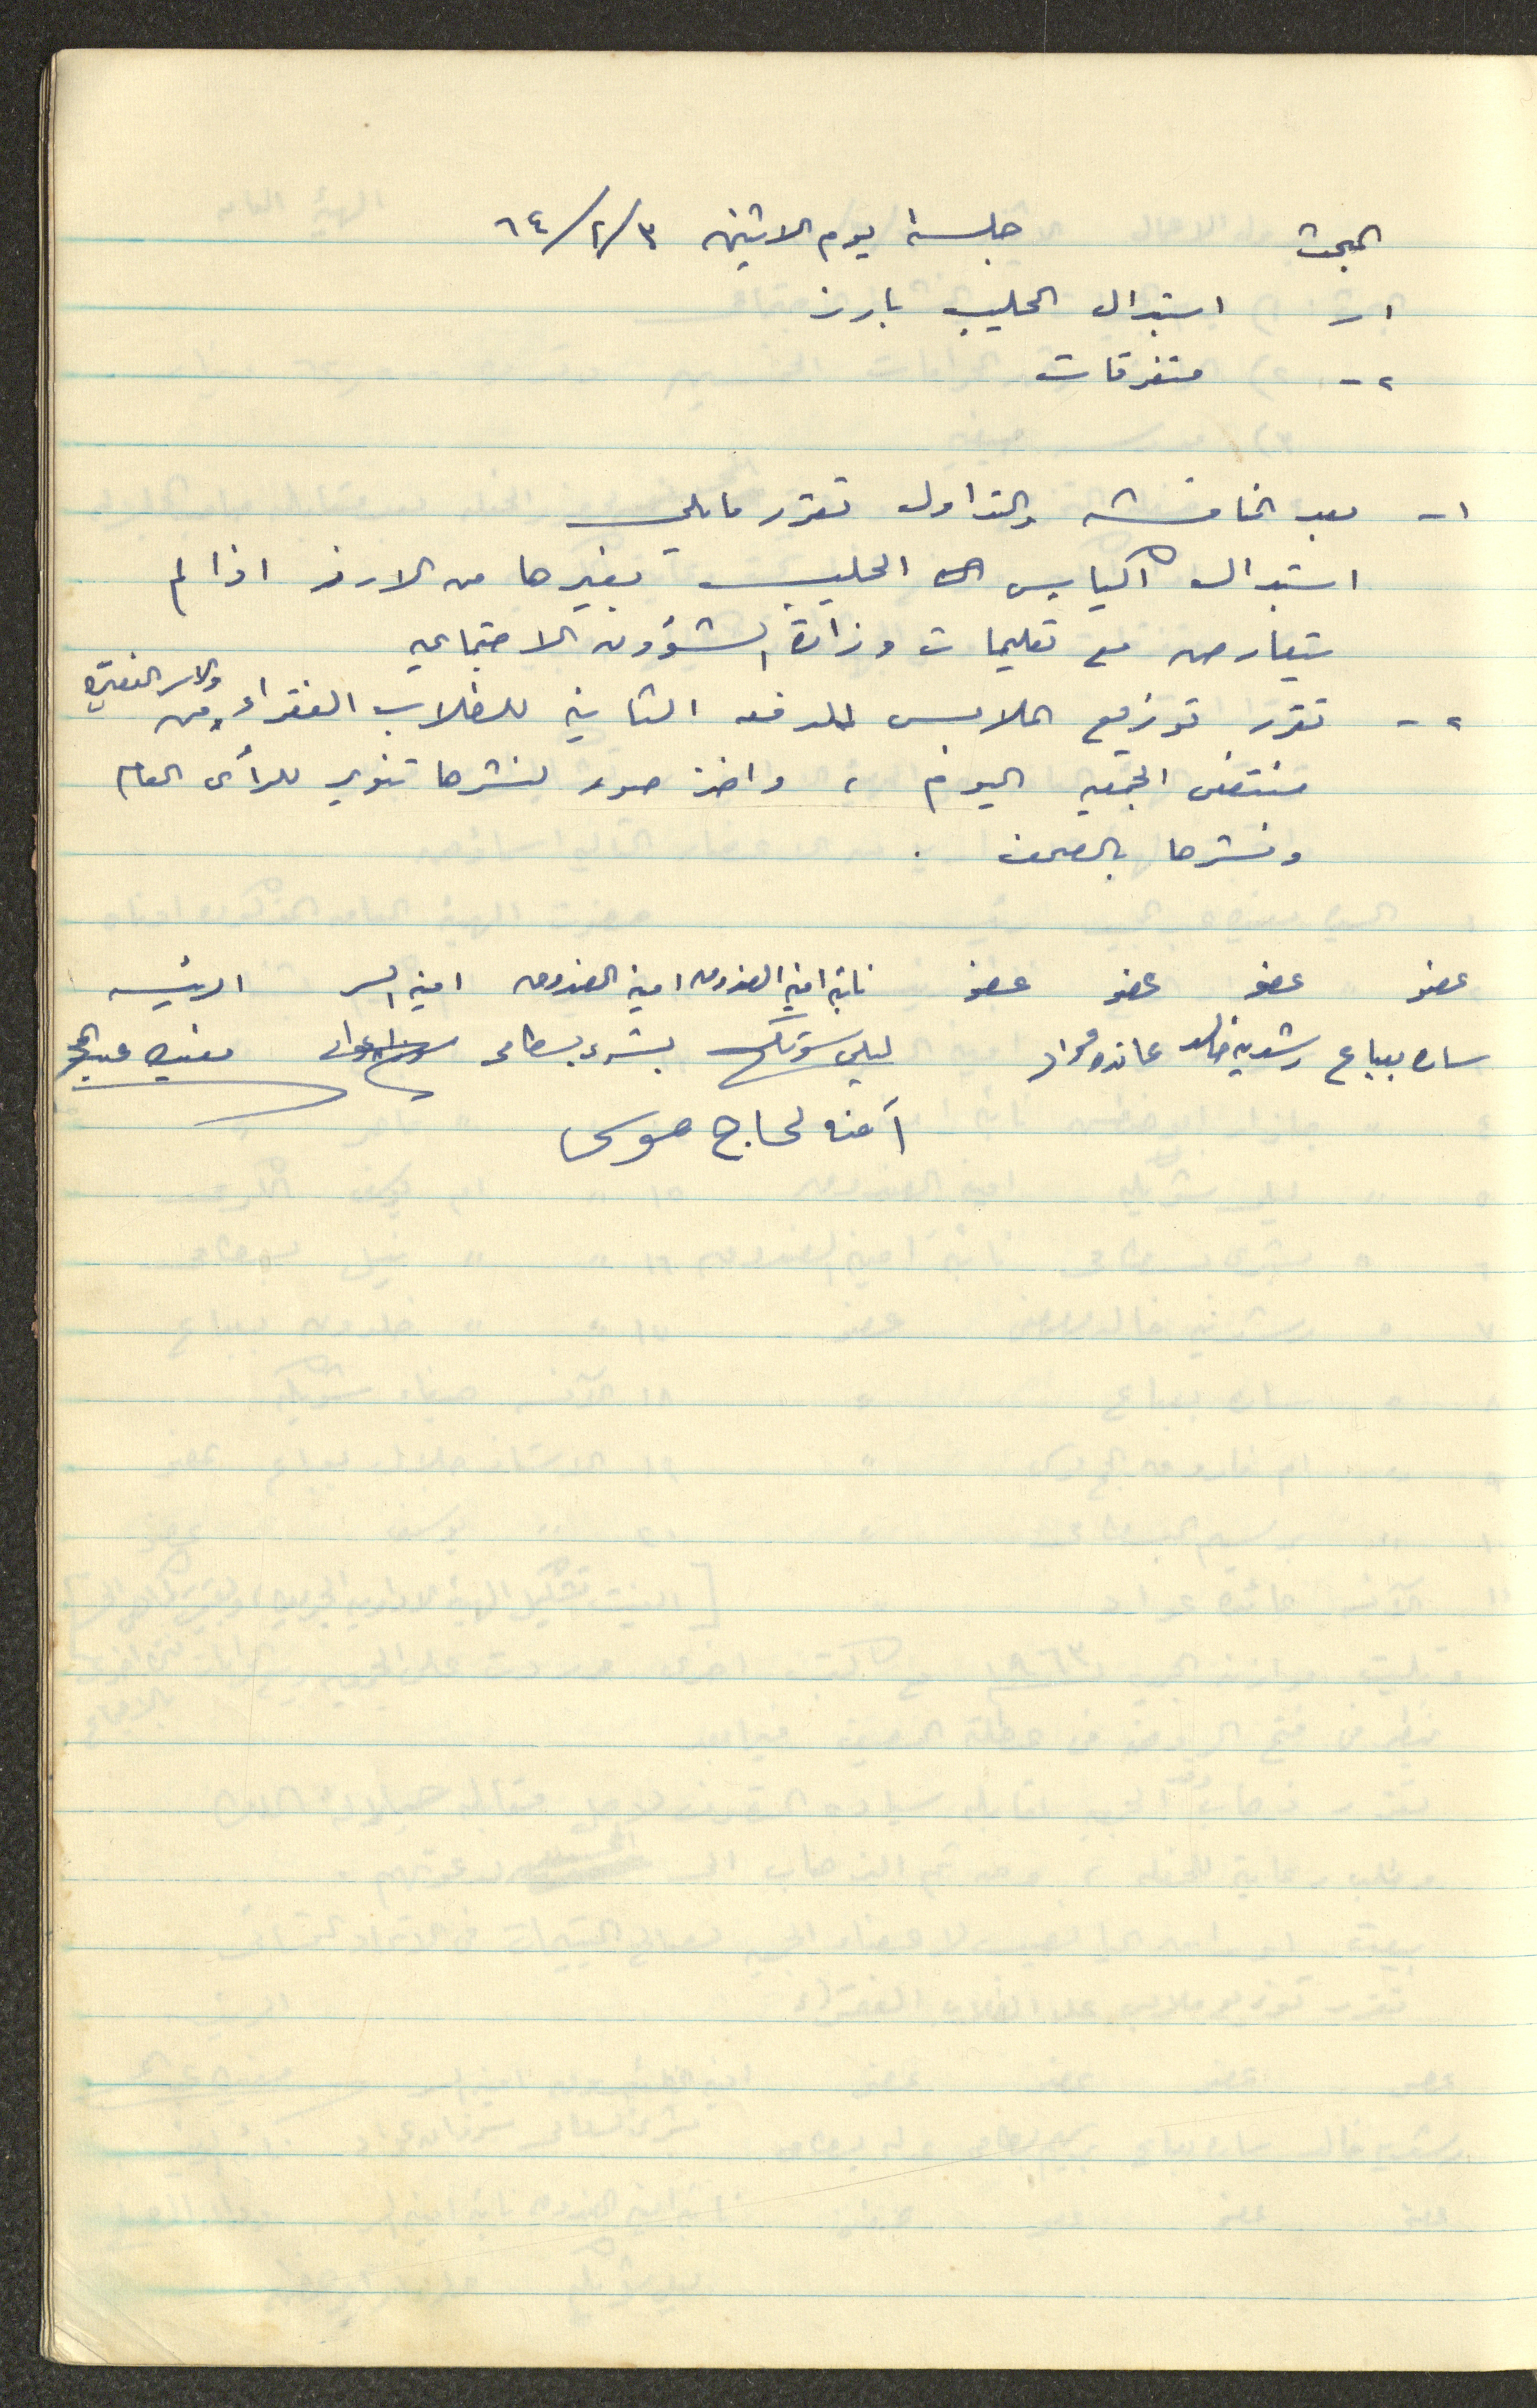 جلسة يوم الاثنين ٣/٢/٦٤
البحث
١- استبدال الحليب بارز
٢- متفرقات
١- بعد المناقشه والتداول تقرر ما يلي
استبدال اكياس الحليب بغيرها من الارز اذا لم
يتعارض مع تعليمات وزارة الشؤون الاجتماعيه
٢- تقرر توزيع الملابس للدفعه الثانية للطلاب الفقراء والاسر الفقيرة من
منتفعي الجمعيه اليوم ، واخذ صور لنشرها تنوير للرأى العام
ونشرها بالصحف .
عضو عضو عضو عضو نائبة امينة الصندوق امينة الصندوق امينة السر الرئيسه
ساره بيباع رشديه خالد عائده عواد ليلى شويكي بشرى بسطامى
آمنه الحاج موسى